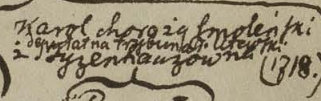 Karol chorąży smoleński
i deputat na trybunał litewski
z Tyzenhauzówną
(1718.)